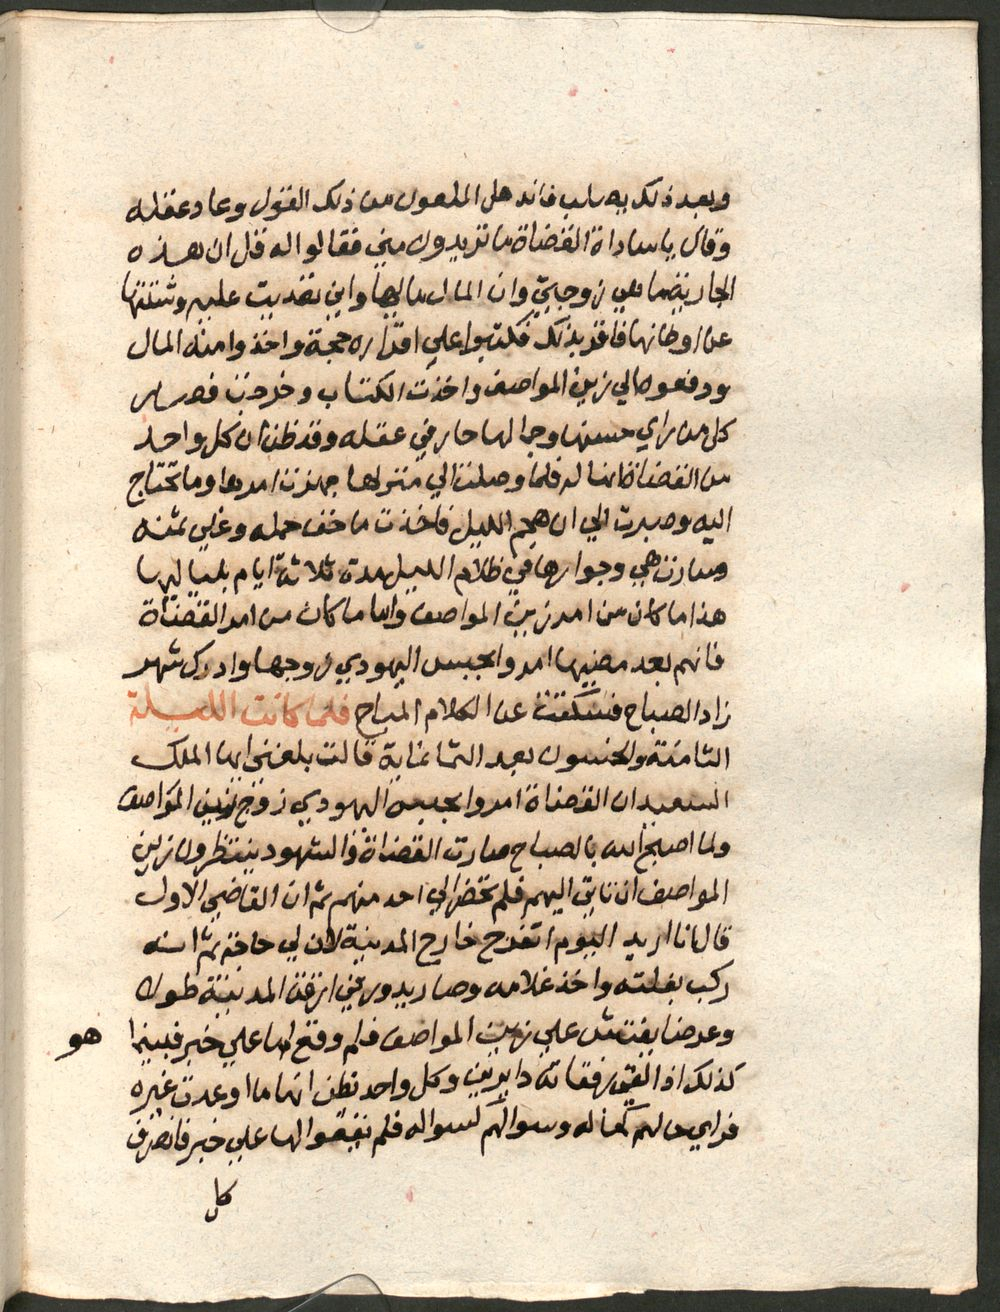 وبعد ذلك يصلب فاندهل الملعون من ذلك القول وعاد عقله
وقال يا ساداة القضاة ما تريدون مني فقالوا له قل ان هذه
الجارية ما هي زوجتي وان المال مالها واني تعديت عليها وشتتها
عن اوطانها فاقر بذلك فكتبوا على اقراره حجة واخذوا منه المال
ودفعوه الي زين المواصف واخذت الكتاب وخرجت فصار
كل من راي حسنها وجمالها حار في عقله وقد ظن ان كل واحد
من القضاة انها له فلما وصلت الي منزلها جهزت امرها وما تحتاج
اليه وصبرت الي ان هجم الليل فاخذت ما خف حمله وغلي ثمنه
وسارت هي وجوارها في ظلام الليل مدت ثلاثة ايام بلياليها
هذا ما كان من امر زين المواصف واما ما كان من امر القضاة
فانهم بعد مضيها امروا بحبس اليهودي زوجها وادرك شهر
زاد الصباح فسكتت عن الكلام المباح فلما كانت الليلة
الثامنة والخمسون بعد الثمانماية قالت بلغني ايها الملك
السعيد ان القضاة امروا بحبس اليهودي زوج زين المواصف
ولما اصبح الله بالصباح صارت القضاة والشهود ينتظرون زين
المواصف ان تاتي اليهم فلم تحضر الي احد منهم ثم ان القاضي الاول
قال انا اريد اليوم اتفرج خارج المدينة لان لي حاجة ثم انه
ركب بغلته واخذ غلامه وصار يدور في ازقة المدينة طولا
وعرضا يفتش علي زين المواصف فلم وقع لها علي خبر فبينما هو
كذلك اذ التقي رفقاته دايرين وكل واحد تظن انها ما اوعدت غيره
فراي حالهم كحاله وسوالهم كسواله فلم يقعوا لها علي خبر فانصرف
كل